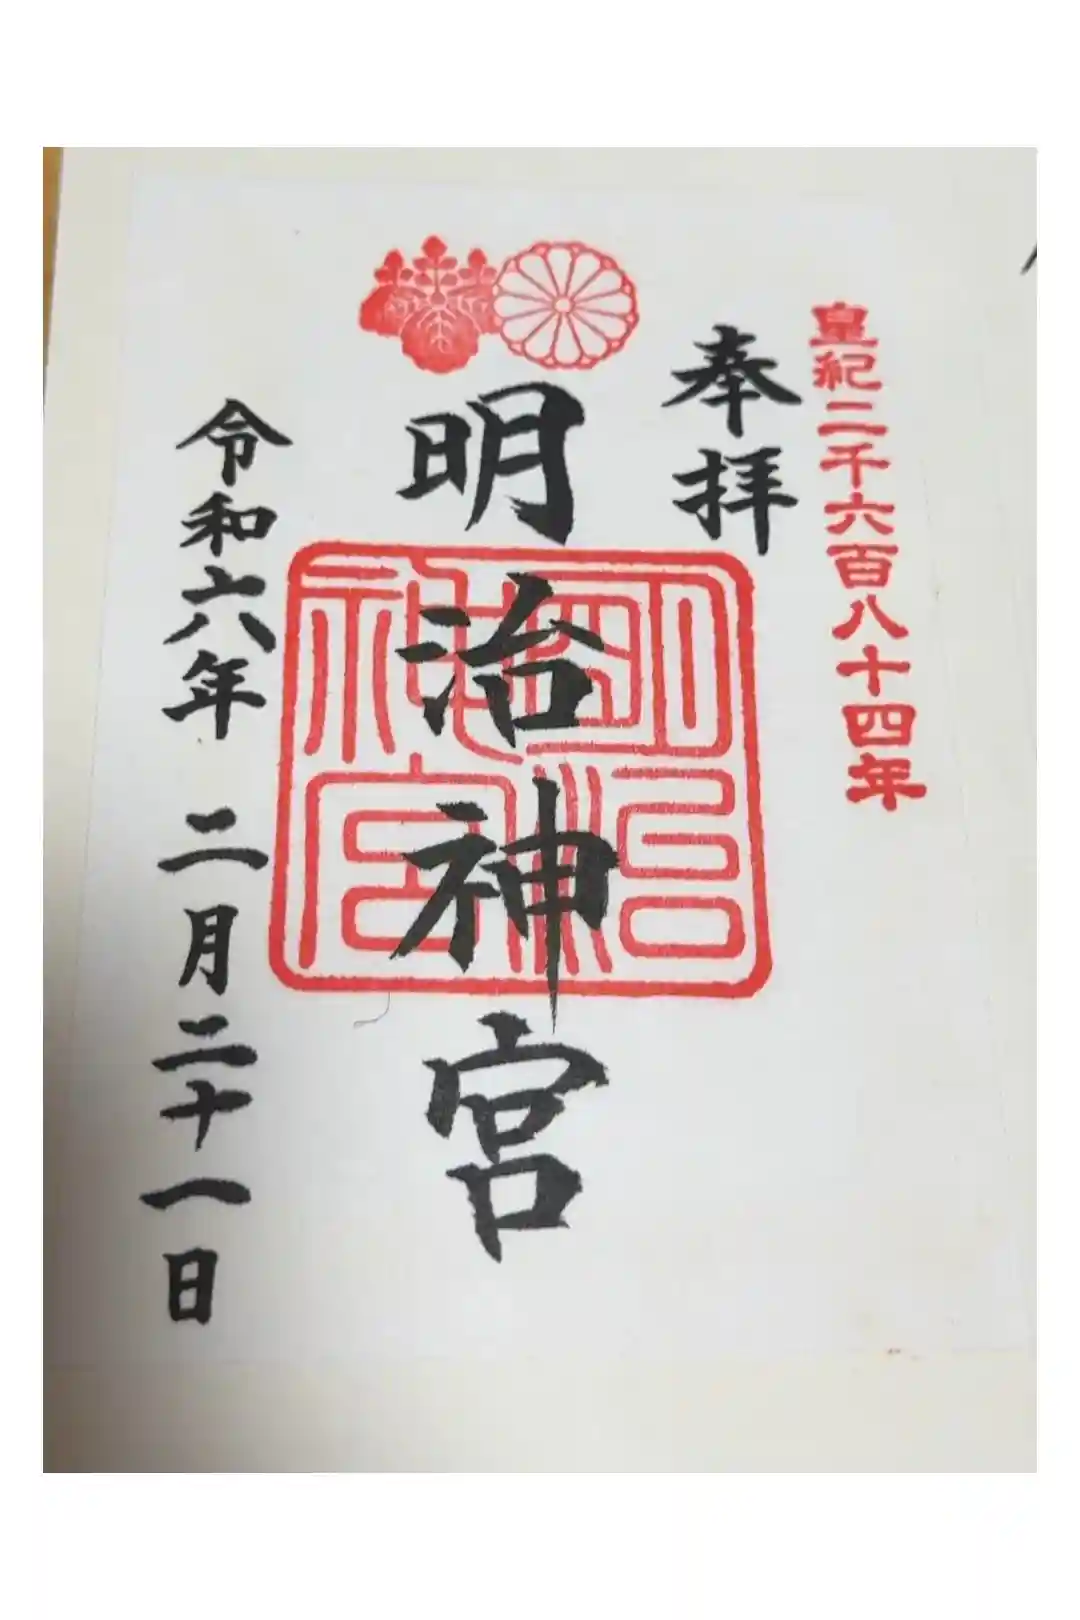 皇紀二千六百八十四年
奉拝
明治神宮
明治神宮
令和六年 二月二十一日